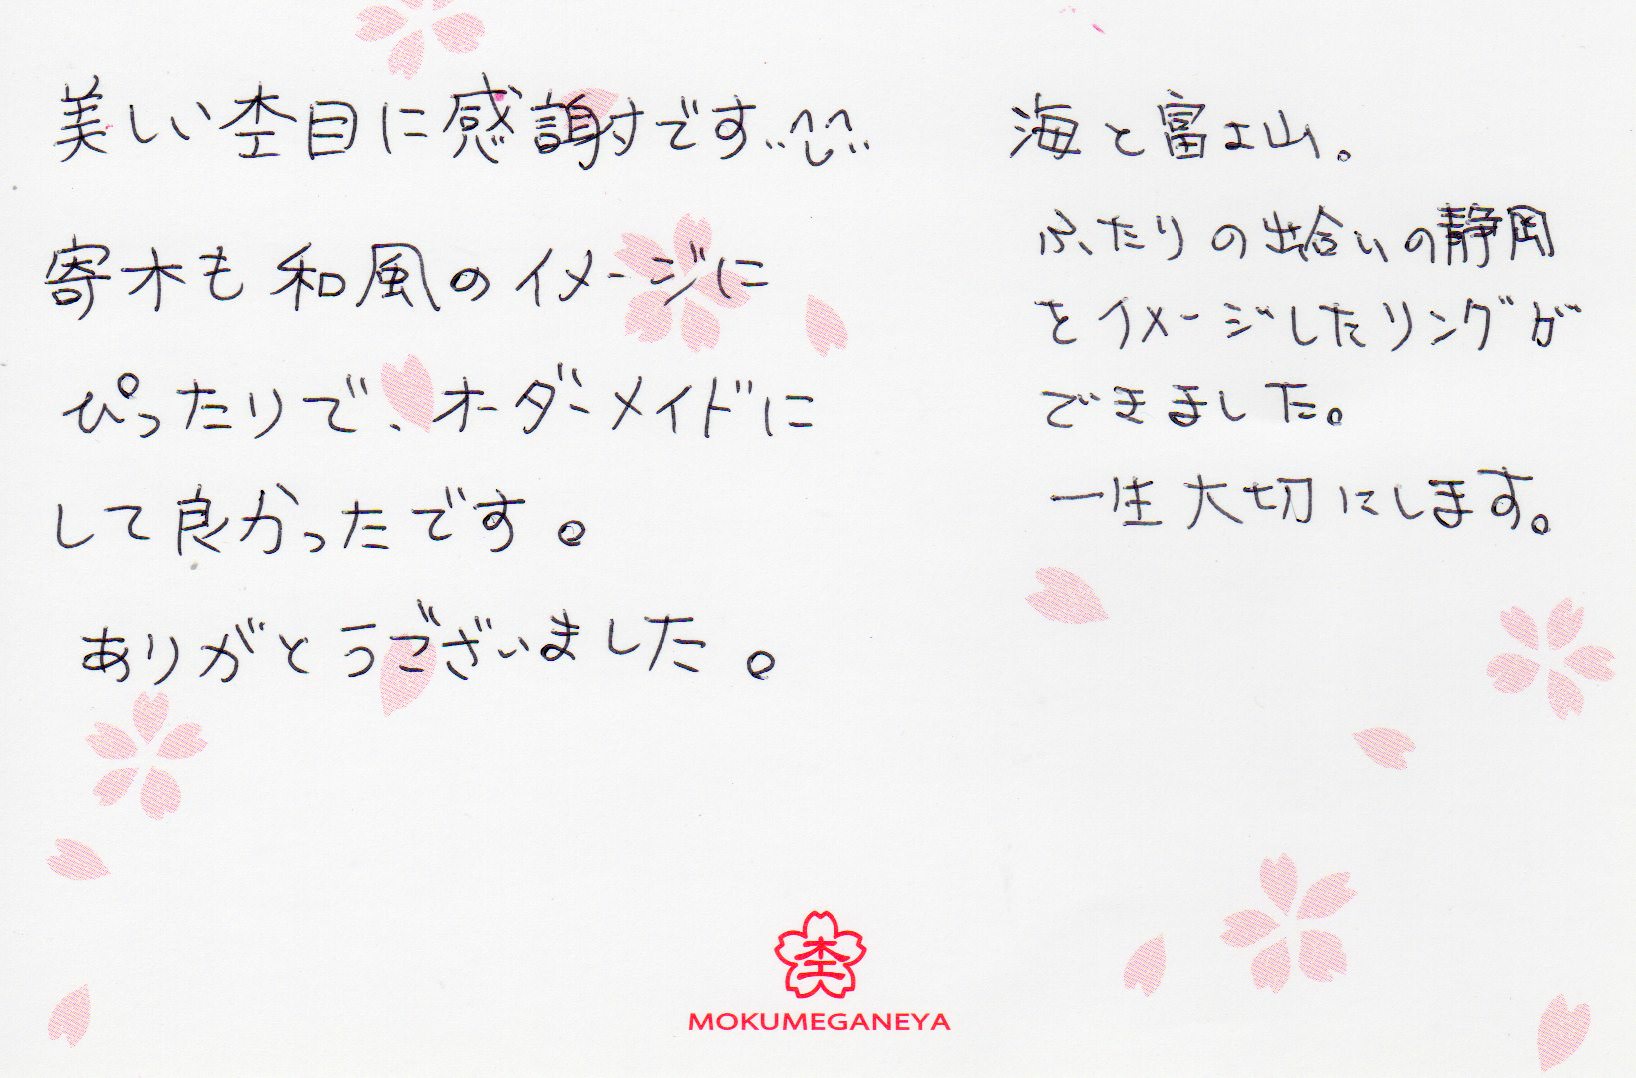 美しい杢目に感謝です
寄木も和風のイメージに
ぴったりで、オーダーメイドに
して良かったです。
ありがとうございました。
海と富士山。
ふたりの出合いの静岡
をイメージしたリングが
できました。
一生大切にします。
杢
MOKUMEGANEYA